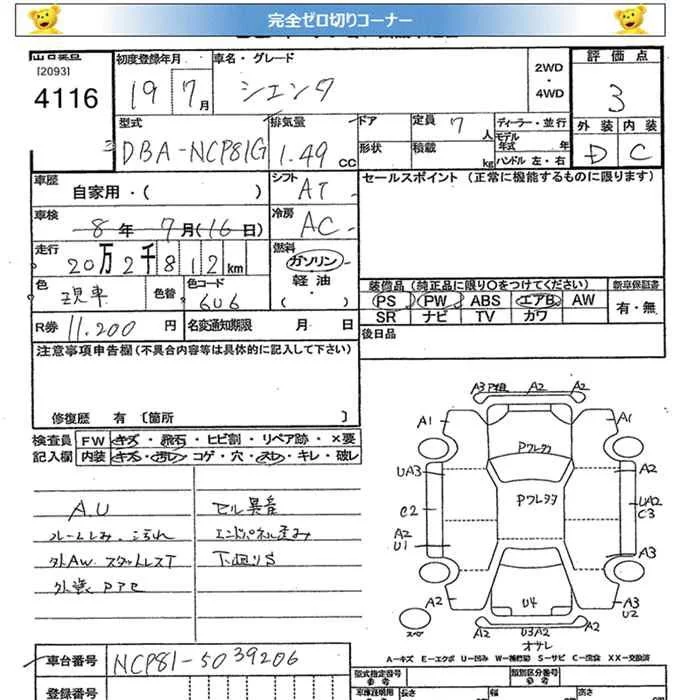 完全ゼロ切りコーナー
[2093]
4116
初度登録年月
19 7月
車名・グレード
シエンタ
2WD
・
4WD
評価点
3
型式
DBA-NCP81G
排気量
1.49 CC
ドア
定員 7 人
形状
積載 kg
ディーラー・並行
モデル年式 年
ハンドル 左・右
外装 内装
D C
車歴
自家用・( )
シフト
AT
セールスポイント (正常に機能するものに限ります)
車検
8年 7月(16日)
冷房
AC
走行
20万2千812km
燃料
ガソリン
軽油
・( )
色
現車
色替
色コード
6U6
装備品(純正品に限り○をつけてください)
新車保証書
PS PW ABS エアB AW
SR ナビ TV カワ
有・無
R券 11,200 円
名変通知期限 月 日
後日品
注意事項申告欄(不具合内容等は具体的に記入して下さい)
修復歴 有 〔箇所 〕
検査員記入欄
FW キズ・飛石・ヒビ割・リペア跡・×要
内装 キズ・汚レ・コゲ・穴・スレ・キレ・破レ
A.U
セル異音
ルームしみ、こげれ
エンドパネル歪み
外AW、スタットレスT
下廻りS
外装 Pアセ
A3 P粗 A2 A2
A1 A1
Pウレタタ
UA3 A2
Pウレタタ
C2
UA2
C3
A2
U1
A3
U4
A2 A3
U2
スペア
A2 U3A2 A2
オサレ
A-キズ E-エクボ U-凹み W-補修跡 S-サビ C-腐食 XX-交換済
車台番号 NCP81-5039206
登録番号
型式指定番号
類別区分番号
参考
長さ
幅
高さ